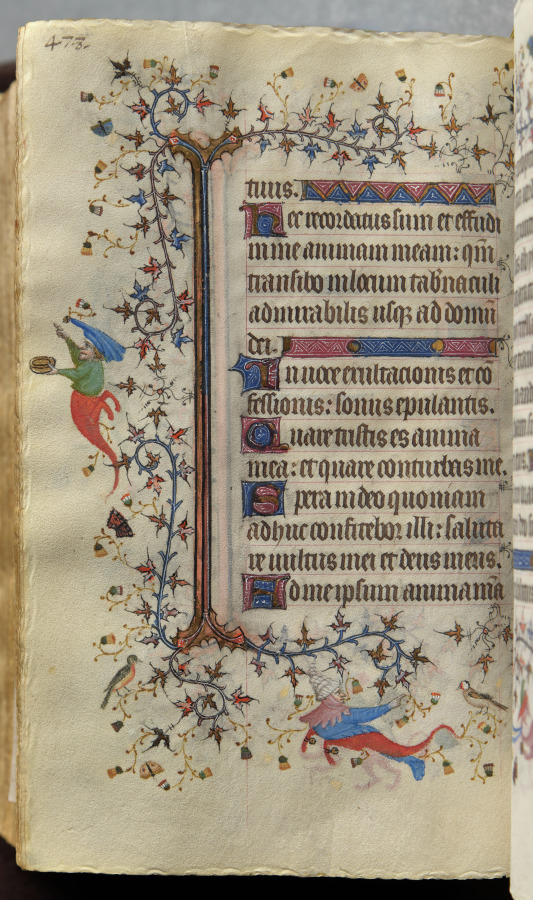 473.
tuus.
Hec recordatus sum et effudi
in me animam meam: qm̄
transibo in locum tab̄naculi
admirabilis usqꝫ ad domū
dei.
In uoce exultacionis et cō
fessionis: sonus epulantis.
Quare tristis es anima
mea: et quare conturbas me.
Spera in deo quoniam
adhuc confitebor illi: saluta
re uultus mei et deus meus.
Ad me ipsum anima m̄a